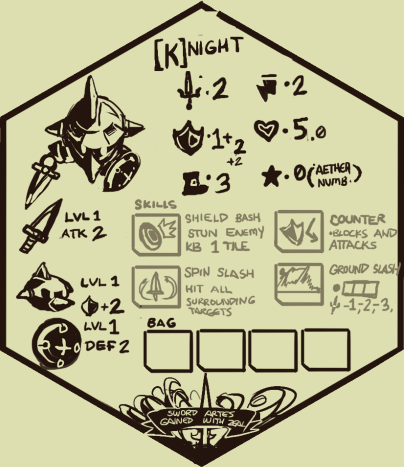 [K]NIGHT
·2
·2
·1+2
+2
·5.0
·3
·0(AETHER
NUMB.)
LVL 1
ATK 2
LVL 1
+2
LVL 1
DEF 2
SKILLS
SHIELD BASH
STUN ENEMY
KB 1 TILE
COUNTER
·BLOCKS AND
ATTACKS
SPIN SLASH
HIT ALL
SURROUNDING
TARGETS
GROUND SLASH
-1,-2,-3,
BAG
SWORD ARTES
GAINED WITH ZEAL